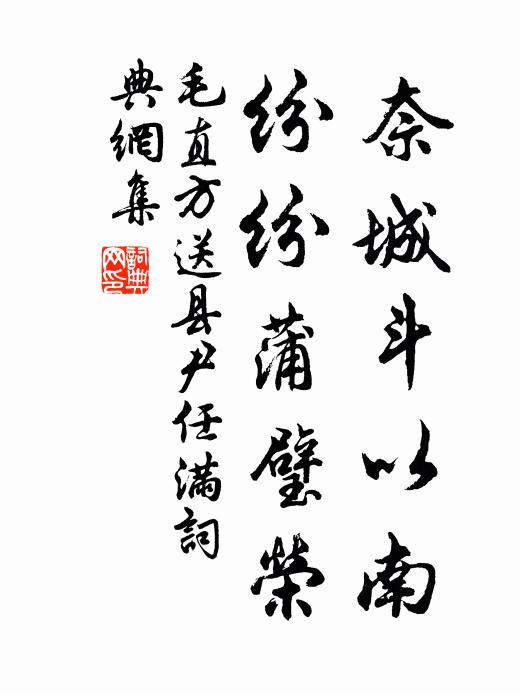 奈城斗以南
纷纷蒲璧榮
毛直方送县尹任满詞
典網集
詞典
网印